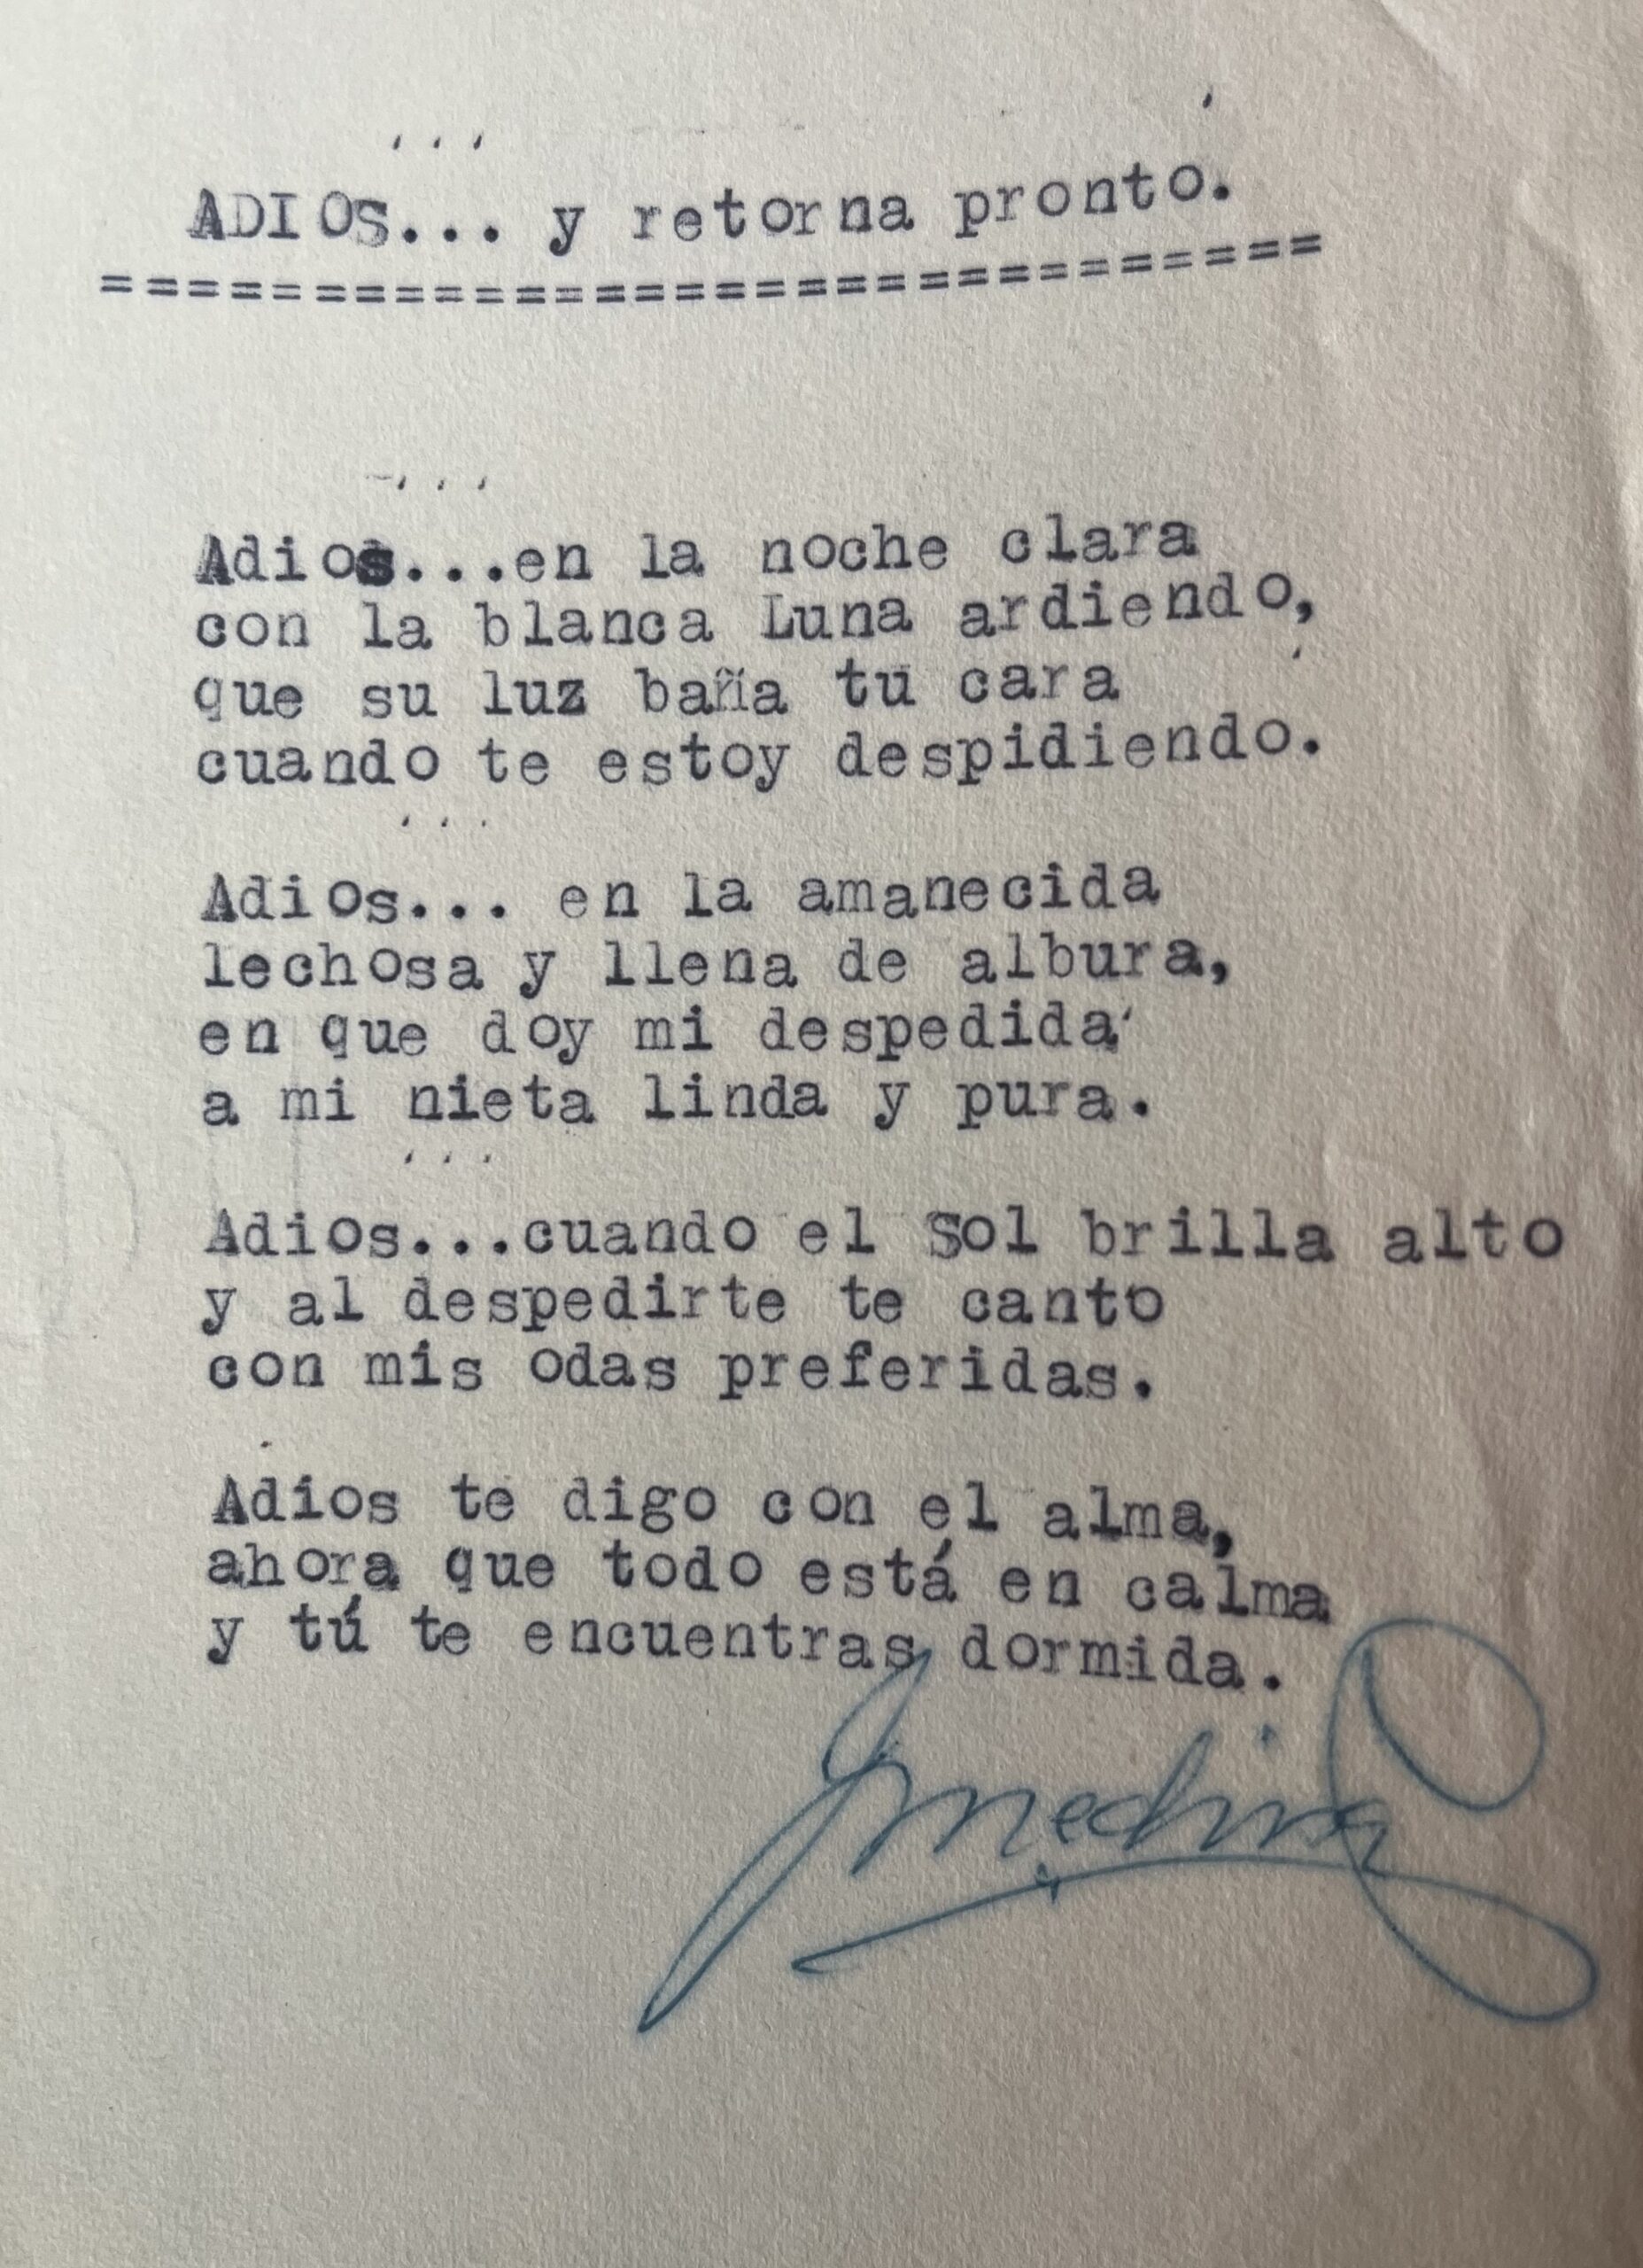 ADIOS... y retorna pronto.
==============================
Adios...en la noche clara
con la blanca Luna ardiendo,
que su luz baña tu cara
cuando te estoy despidiendo.
Adios... en la amanecida
lechosa y llena de albura,
en que doy mi despedida
a mi nieta linda y pura.
Adios...cuando el Sol brilla alto
y al despedirte te canto
con mis odas preferidas.
Adios te digo con el alma,
ahora que todo está en calma
y tú te encuentras dormida.
Medina